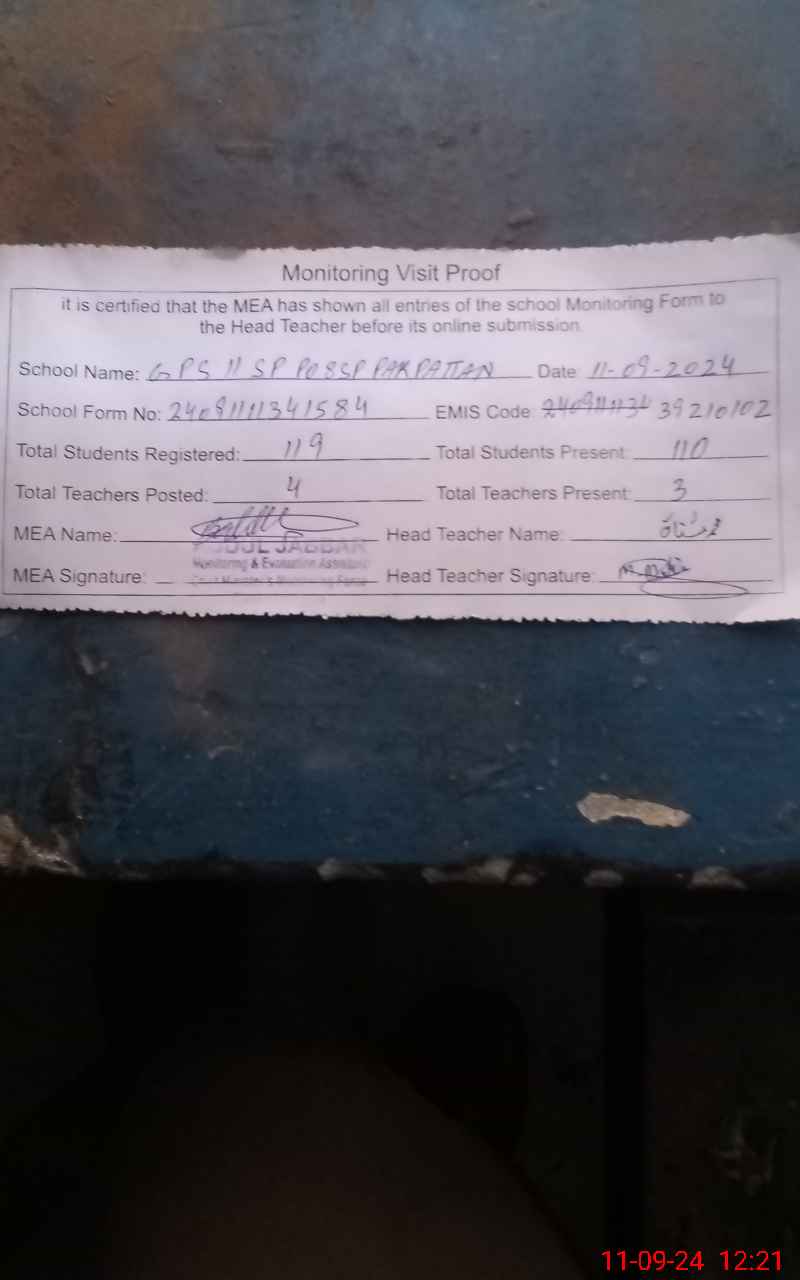 Monitoring Visit Proof
it is certified that the MEA has shown all entries of the school Monitoring Form to
the Head Teacher before its online submission.
School Name: GPS 11 SP PO 8SP PAKPATTAN Date: 11-09-2024
School Form No: 2409111341584 EMIS Code: 39210102
Total Students Registered: 119 Total Students Present: 110
Total Teachers Posted: 4 Total Teachers Present: 3
MEA Name: Head Teacher Name:
ABDUL JABBAR
Monitoring & Evaluation Assistant
MEA Signature: Head Teacher Signature:
11-09-24 12:21